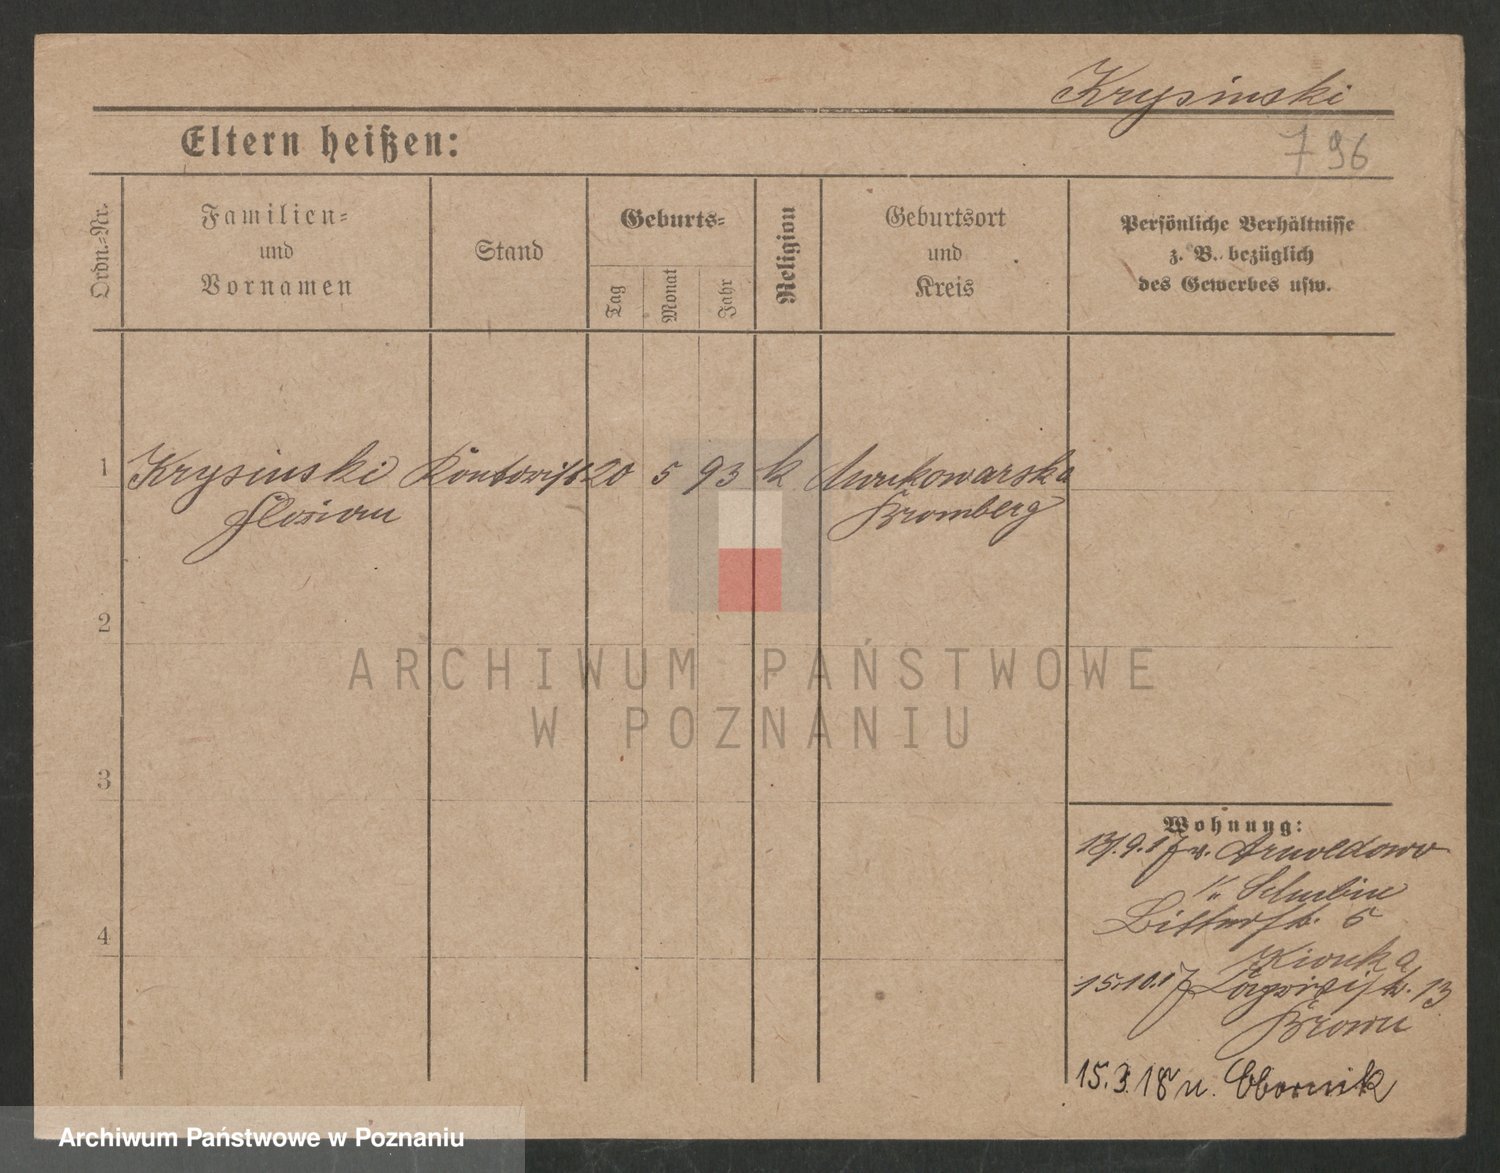 Krysinski
796
Eltern heißen:
Ordn.-Nr.
Familien-
und
Vornamen
Stand
Geburts-
Tag
Monat
Jahr
Religion
Geburtsort
und
Kreis
Persönliche Verhältnisse
z. B. bezüglich
des Gewerbes usw.
1 Krysinski Kontorist 20 5 93 k
Florian Bromberg
2
3
4
Wohnung:
13.9.17 v. Arnoldowo
Schubin
Bitterstr. 5
15.10.17 13
Brown
15.3.18 n. Obornik
ARCHIWUM PAŃSTWOWE
W POZNANIU
Archiwum Państwowe w Poznaniu